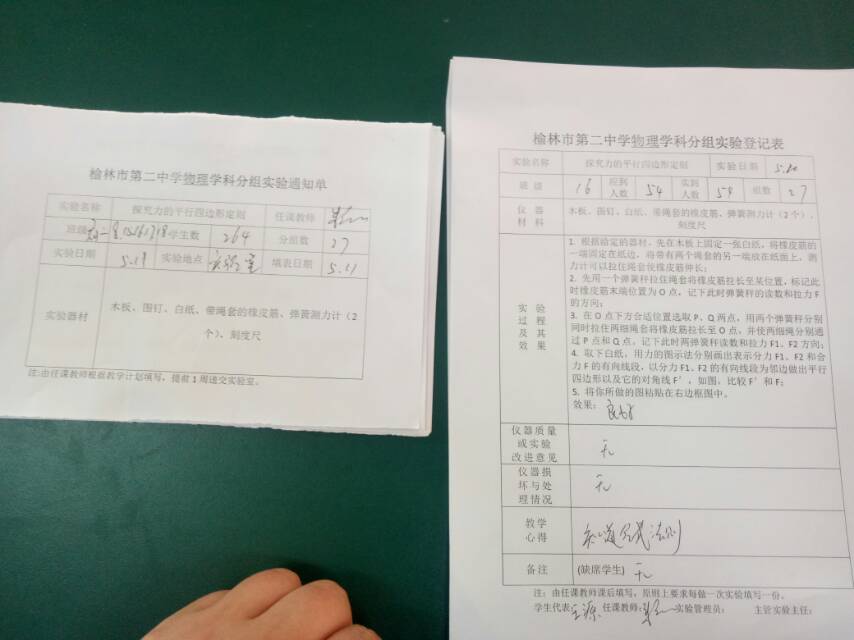 榆林市第二中学物理学科分组实验通知单
实验名称 探究力的平行四边形定则 任课教师
班级 学生数 264 分组数 27
实验日期 5.18 实验地点 实验室 填表日期 5.11
实验器材
木板、图钉、白纸、带绳套的橡皮筋、弹簧测力计(2
个)、刻度尺
注:由任课教师根据教学计划填写,提前1周递交实验室。
榆林市第二中学物理学科分组实验登记表
实验名称 探究力的平行四边形定则 实验日期 5.20
班级 16 应到人数 54 实到人数 54 组数 27
仪器材料
木板、图钉、白纸、带绳套的橡皮筋、弹簧测力计(2个)、
刻度尺
实验过程及其效果
1. 根据给定的器材,先在木板上固定一张白纸,将橡皮筋的
一端固定在纸边,将带有两个绳套的另一端放在纸面上,测
力计可以拉住绳套使橡皮筋伸长;
2. 先用一个弹簧秤拉住绳套将橡皮筋拉长至某位置,标记此
时橡皮筋末端位置为O点,记下此时弹簧秤的读数和拉力F
的方向;
3. 在O点下方合适位置选取P、Q两点,用两个弹簧秤分别
同时拉住两细绳套将橡皮筋拉长至O点,并使两细绳分别通
过P点和Q点,记下此时两弹簧秤读数和拉力F1、F2方向;
4. 取下白纸,用力的图示法分别画出表示分力F1、F2和合
力F的有向线段,以分力F1、F2的有向线段为邻边做出平行
四边形以及它的对角线F′,如图,比较F′和F;
5. 将你所做的图粘贴在右边框图中。
效果: 良好
仪器质量或实验改进意见 无
仪器损坏与处理情况 无
教学心得
备注 (缺席学生) 无
注:由任课教师课后填写,原则上要求每做一次实验填写一份。
学生代表: 任课教师: 实验管理员: 主管实验主任: